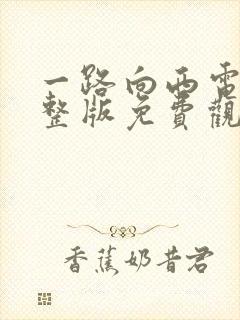 一路向西電
整版免費觀
香蕉奶昔君